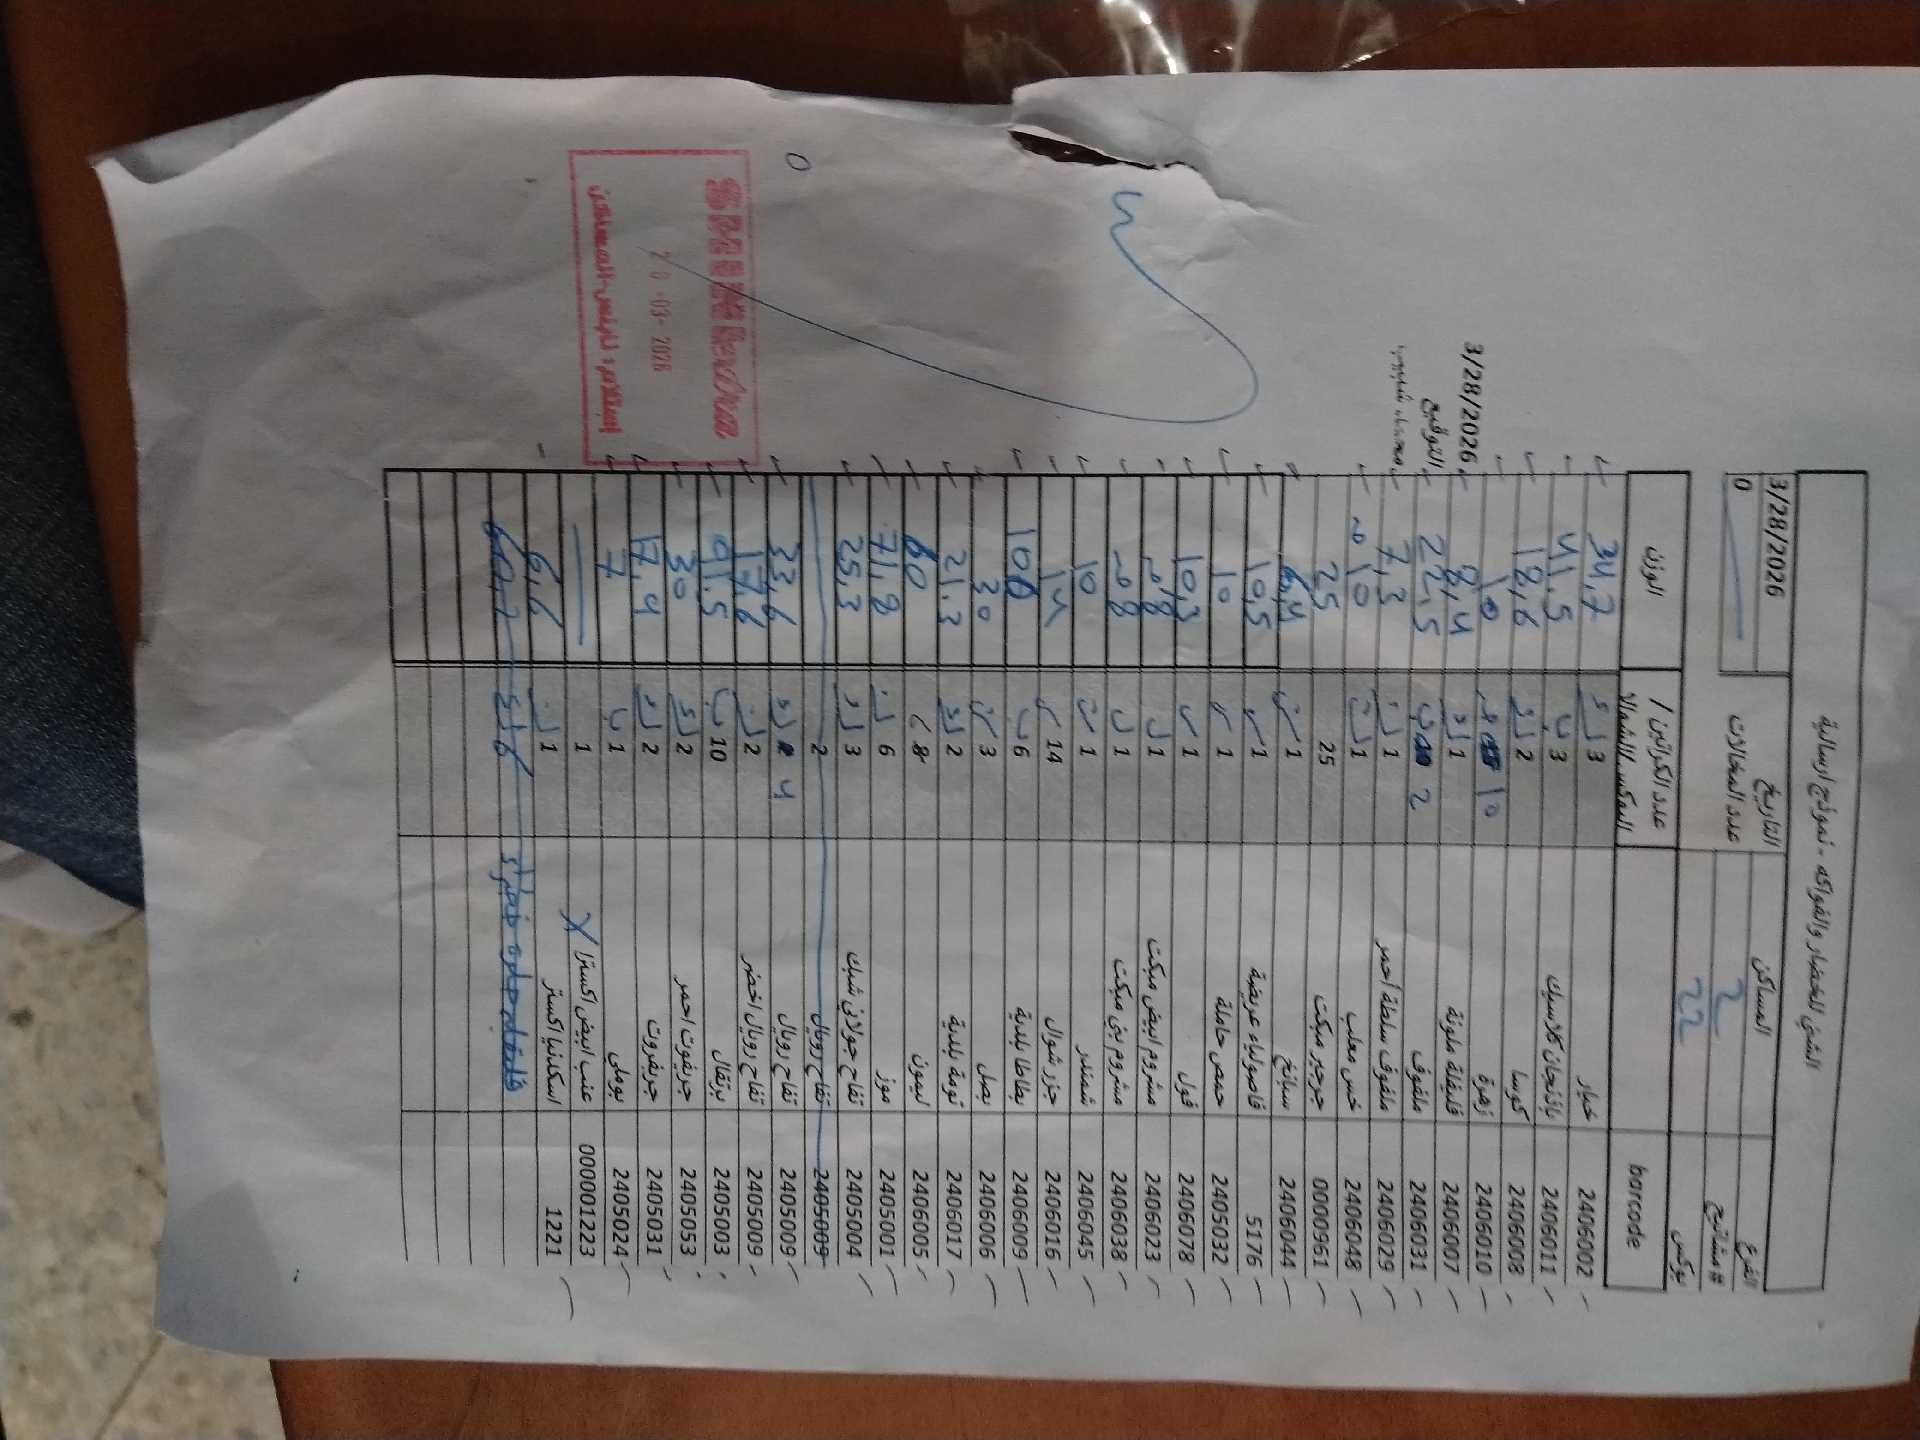 الشحن الخضار والفواكه - نموذج ارسالية
الفرع المساكن التاريخ 3/28/2026
# مشاتيح 2 عدد المخالات 0
بوكس 22
barcode عدد الكراتين / البوكس/الشوالا الوزن
2406002 خيار 3 34,7
2406011 باذنجان كلاسيك 3 41,5
2406008 كوسا 2 18,6
2406010 زهرة 10 10
2406007 فليفلة ملونة 1 8,4
2406031 ملفوف 2 22,5
2406029 ملفوف سلطة احمر 1 7,3
2406048 خس معلب 1 10
00000961 جرجير مبكت 25 25
2406044 سبانخ 1 6,4
5176 فاصولياء عريضة 1 10,5
2405032 حمص حاملة 1 10
2406078 فول 1 10,3
2406023 مشروم ابيض مبكت 1 8
2406038 مشروم بني مبكت 1 8
2406045 شمندر 1 10
2406016 جزر شوال 14 14
2406009 بطاطا بلدية 6 100
2406006 بصل 3 30
2406017 ثومة بلدية 2 21,3
2406005 ليمون 8 60
2405001 موز 6 71,8
2405004 تفاح جولاني شبك 3 25,3
2405009 تفاح رويال 2
2405009 تفاح رويال 4 33,6
2405009 تفاح رويال اخضر 2 17,6
2405003 برتقال 10 91,5
2405053 جريفوت احمر 2 30
2405031 جريفروت 2 17,4
2405024 بوملي 1 7
000001223 عنب ابيض اكسترا X 1
1221 اسكدنيا اكستر 1 6,6
3/28/2026
التوقيع
إستلام : نابلس-المساكن